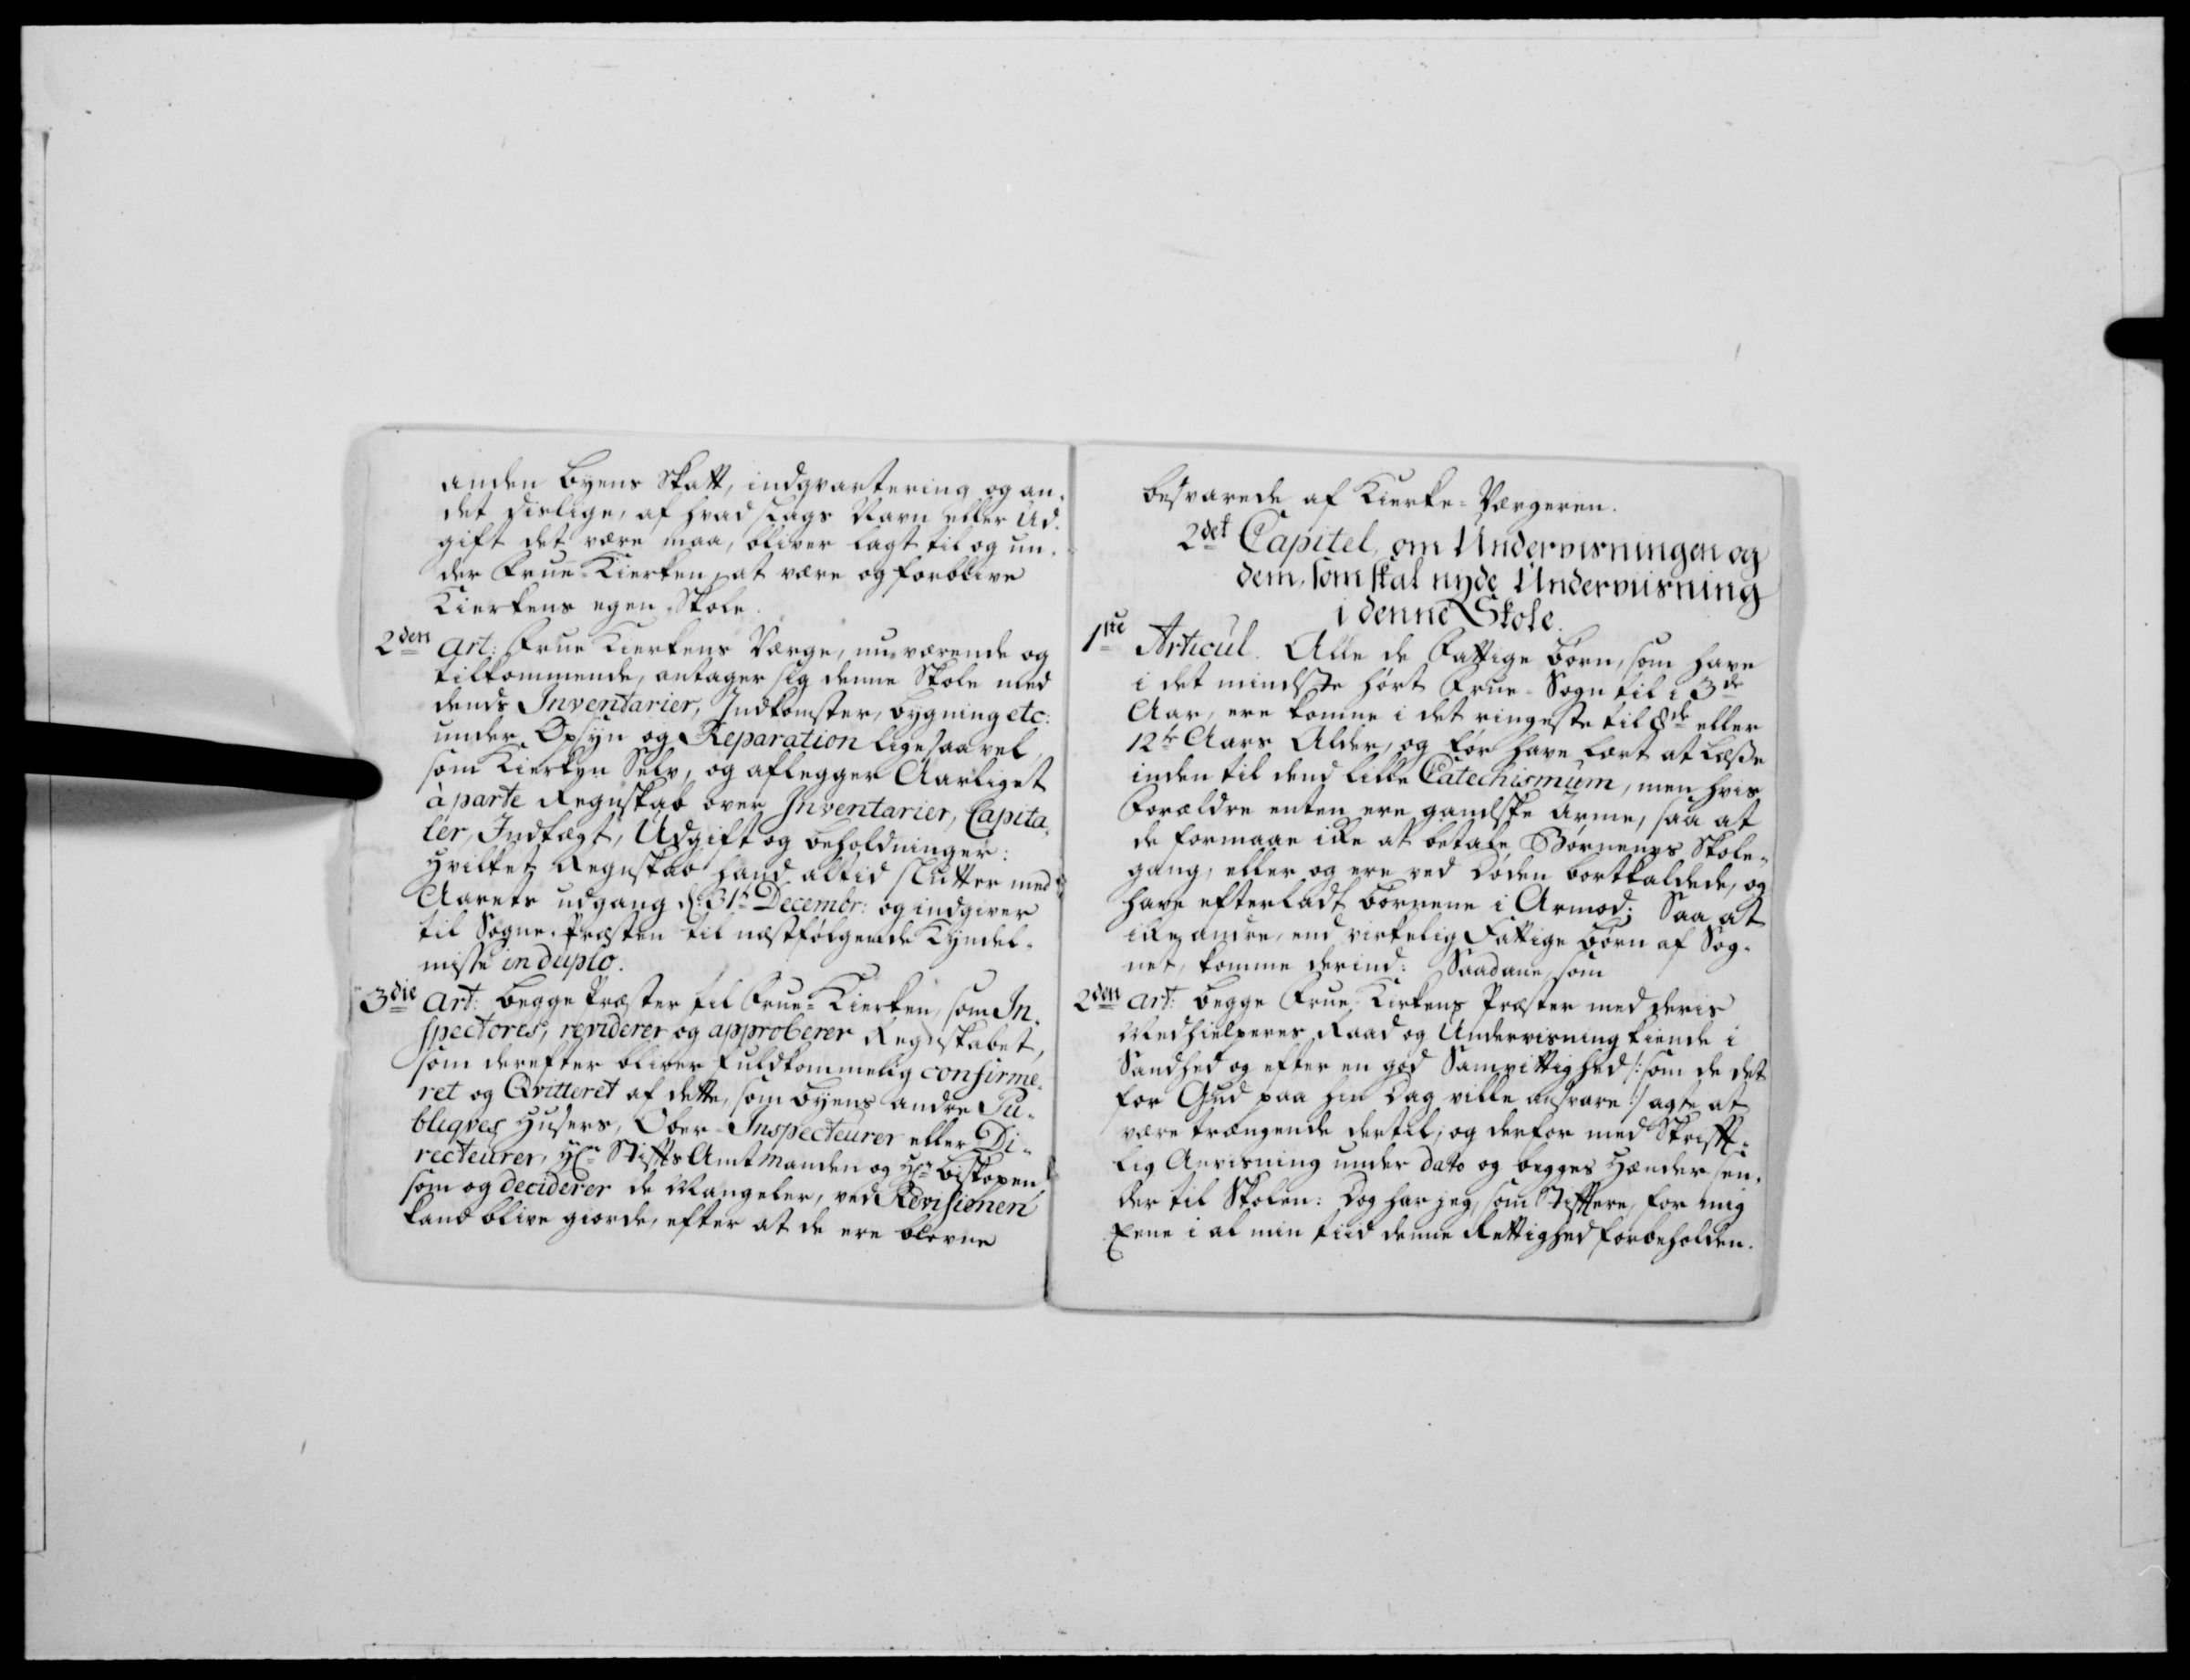 anden Byens Skatt, indqvartering og an-
det deslige, af hvad slags Navn eller Ud-
gift det være maa, bliver lagt til og un-
der Frue-Kierken, at være og forblive
Kierkens egen Skole.
2den Art: Frue Kierkens Værge, nuværende og
tilkommende, antager sig denne Skole med
dends Inventarier, Indkomster, bygning etc:
under Opsÿn og Reparation ligesaavel,
som Kierken Selv, og aflegger Aarliget
à parte Regnskab over Inventarier, Capita-
ler, Indtægt, Udgift og beholdninger:
Hvilket Regnskab hand altid slutter med
Aarets udgang d: 31te Decembr: og indgiver
til Sogne-Præsten til næstfølgende Kyndel-
misse in duplo.
3die Art: Begge Præster til Frue-Kierken, som In-
spectores, reviderer og approberer Regnskabet,
som derefter bliver fuldkommelig confirme-
ret og Qvitteret af dette, som Byens andre Pu-
bliqves Huusers, Ober-Inspecteurer eller Di-
recteurer, Hr. StifftsAmtmanden og Hr. Biskopen
som og deciderer de Mangeler, ved Revisionen
kand blive giorde, efter at de ere blevne
besvarede af Kierke-Værgeren.
2det Capitel, om Undervisningen og
dem, som skal nyde Underviisning
i denne Skole.
1ste Articul. Alle de Fattige Børn, som have
i det mindste hørt Frue-Sogn til i 3de
Aar, ere komne i det ringeste til 8de eller
12te Aars Alder, og før have lært at læsse
inden til dend lille Catechismum, men hvis
Forældre enten ere gandske Arme, saa at
de formaae ikke at betale Børnenes Skole-
gang, eller og ere ved Døden bortkaldede, og
have efterladt børnene i Armod; Saa at
ikke andre, end virkelig Fattige børn af Sog-
net, komme derind: Saadane, som
2den Art: Begge Frue Kirkens Præster med deris
Medhielperes Raad og Undervisning kiende i
Sandhed og efter en god Samvittighed /: som de det
for Gud paa hin Dag ville ansvare :/ agte at
være trængende dertil; og derfor med Skrifft-
lig Anvisning under dato og begges Hænder sen-
der til Skolen: Dog har jeg, som Stifftere, for mig
Eene i al min tiid denne Rettighed forbeholden.